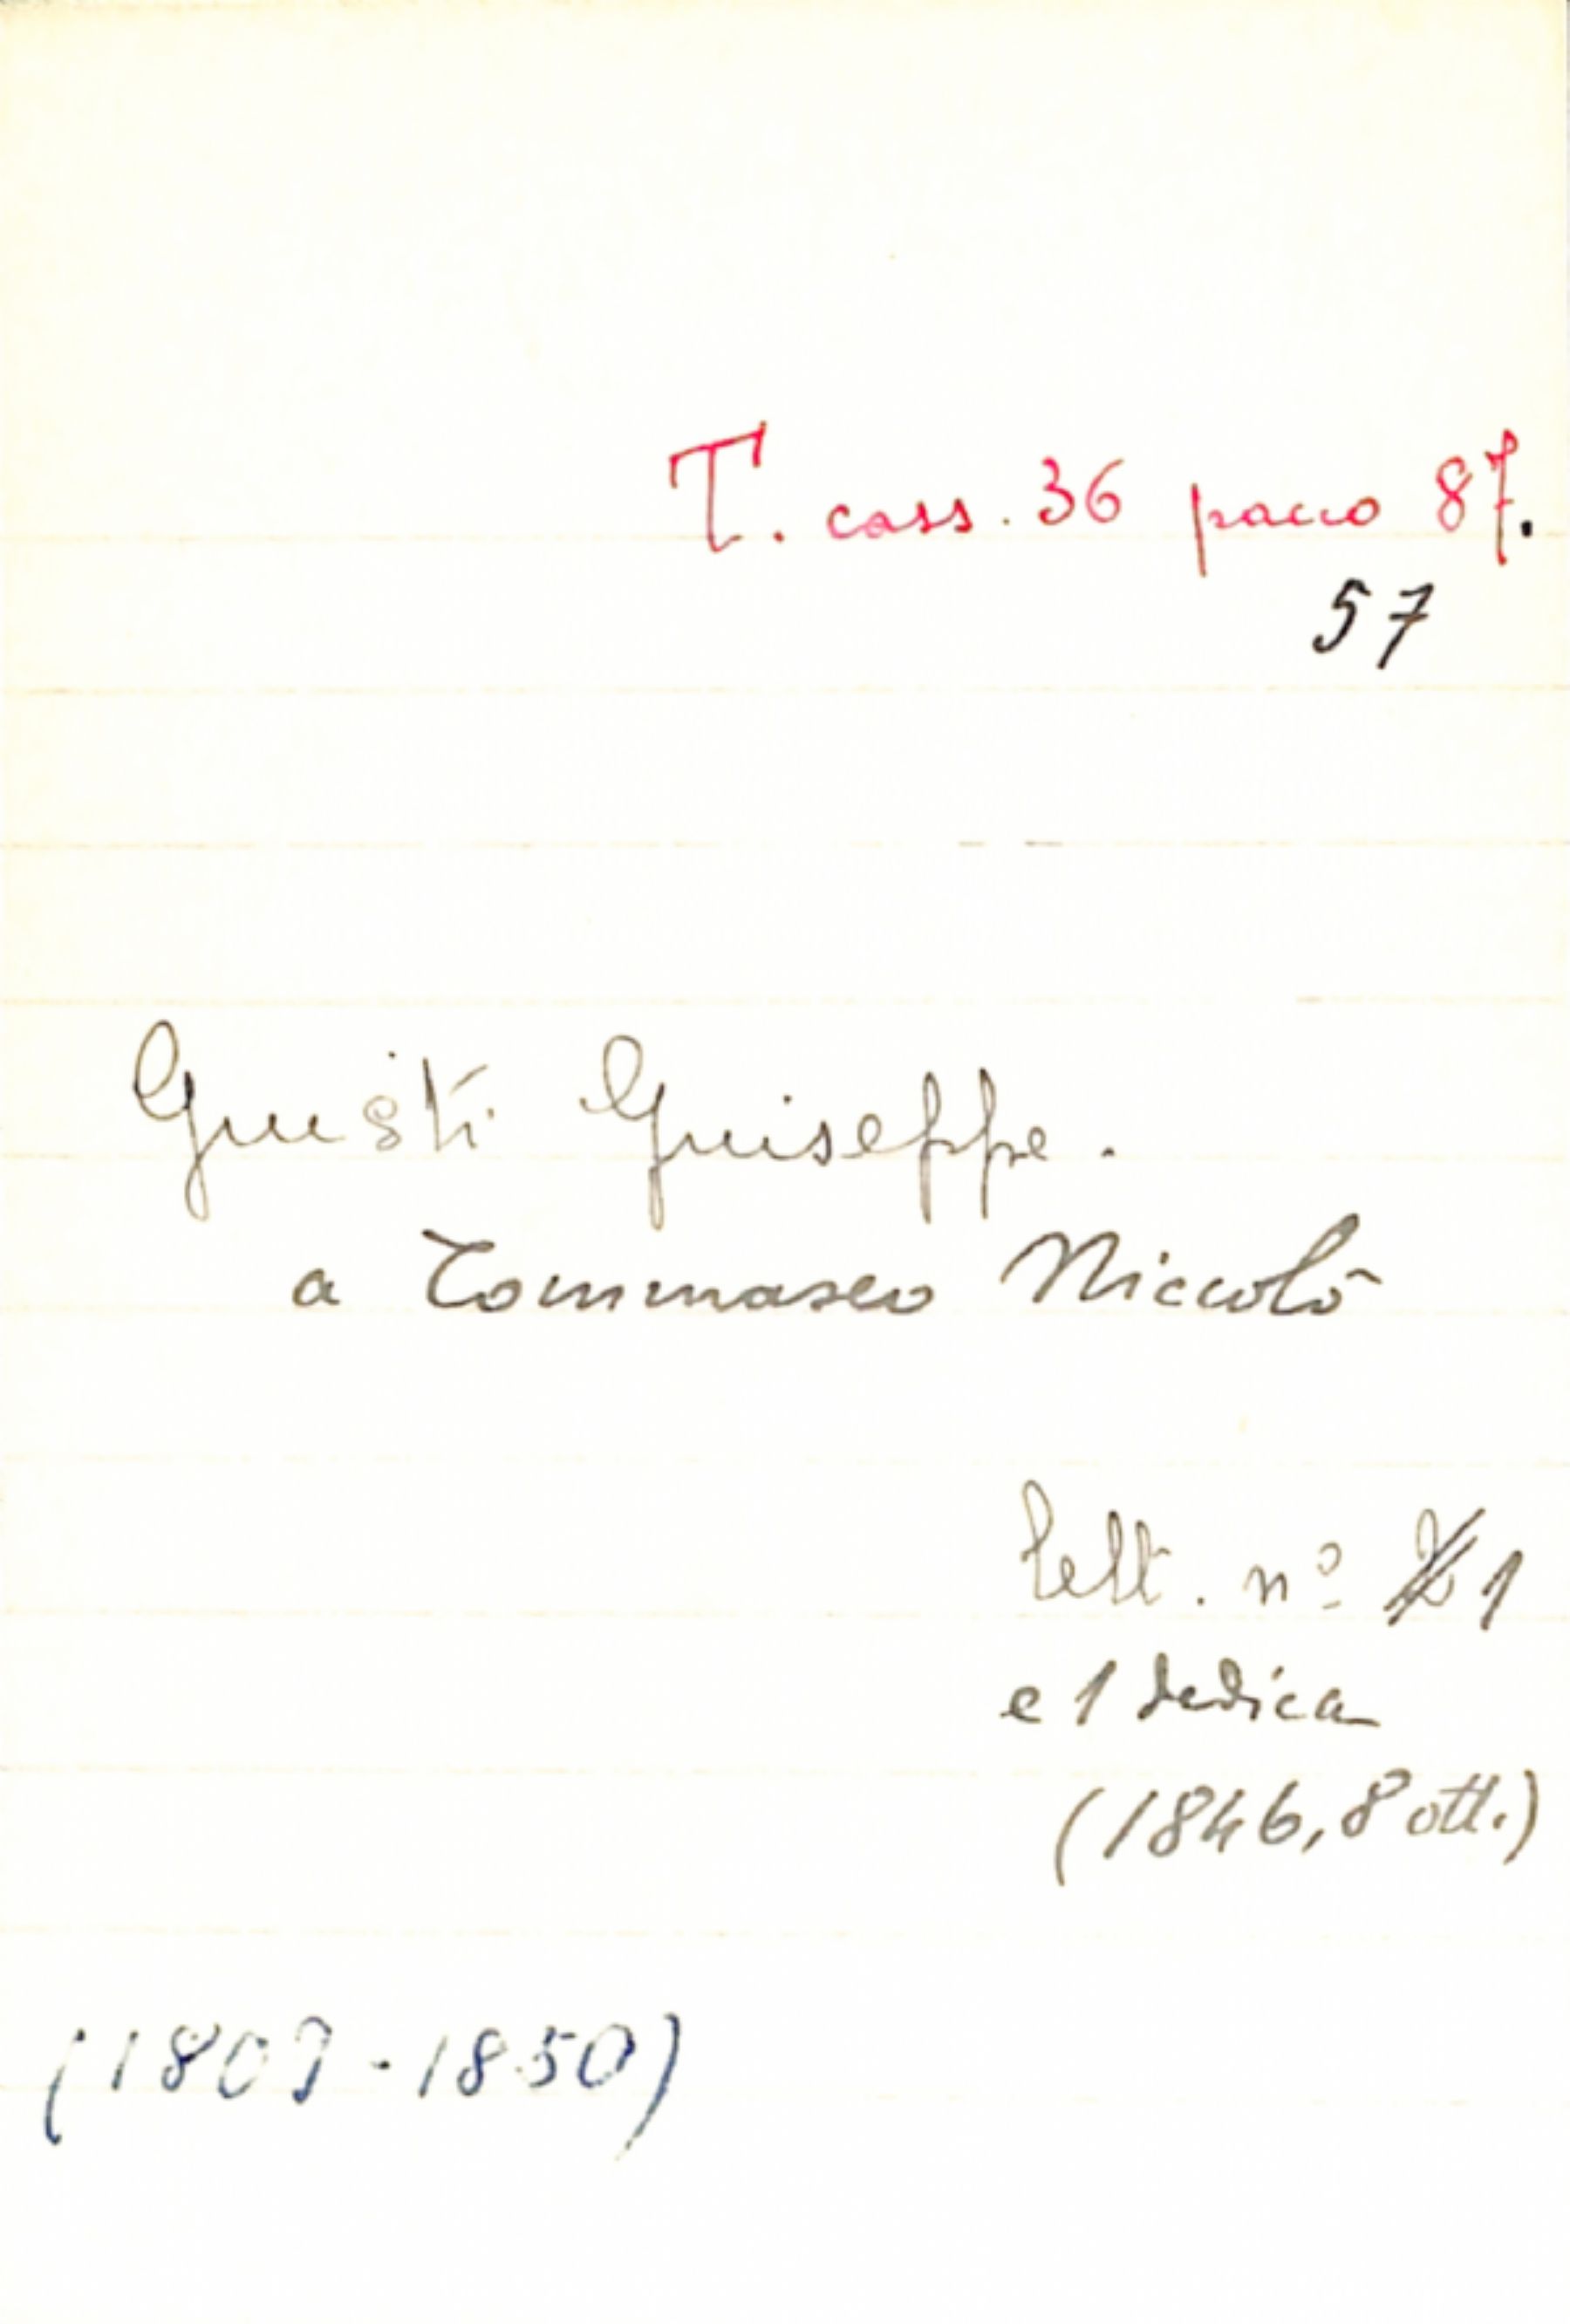 T. cass. 36 pacco 87.
57
Giusti Giuseppe.
a Tommaseo Niccolò
lett. nº 1
e 1 dedica
(1846, 8 ott.)
(1809-1850)